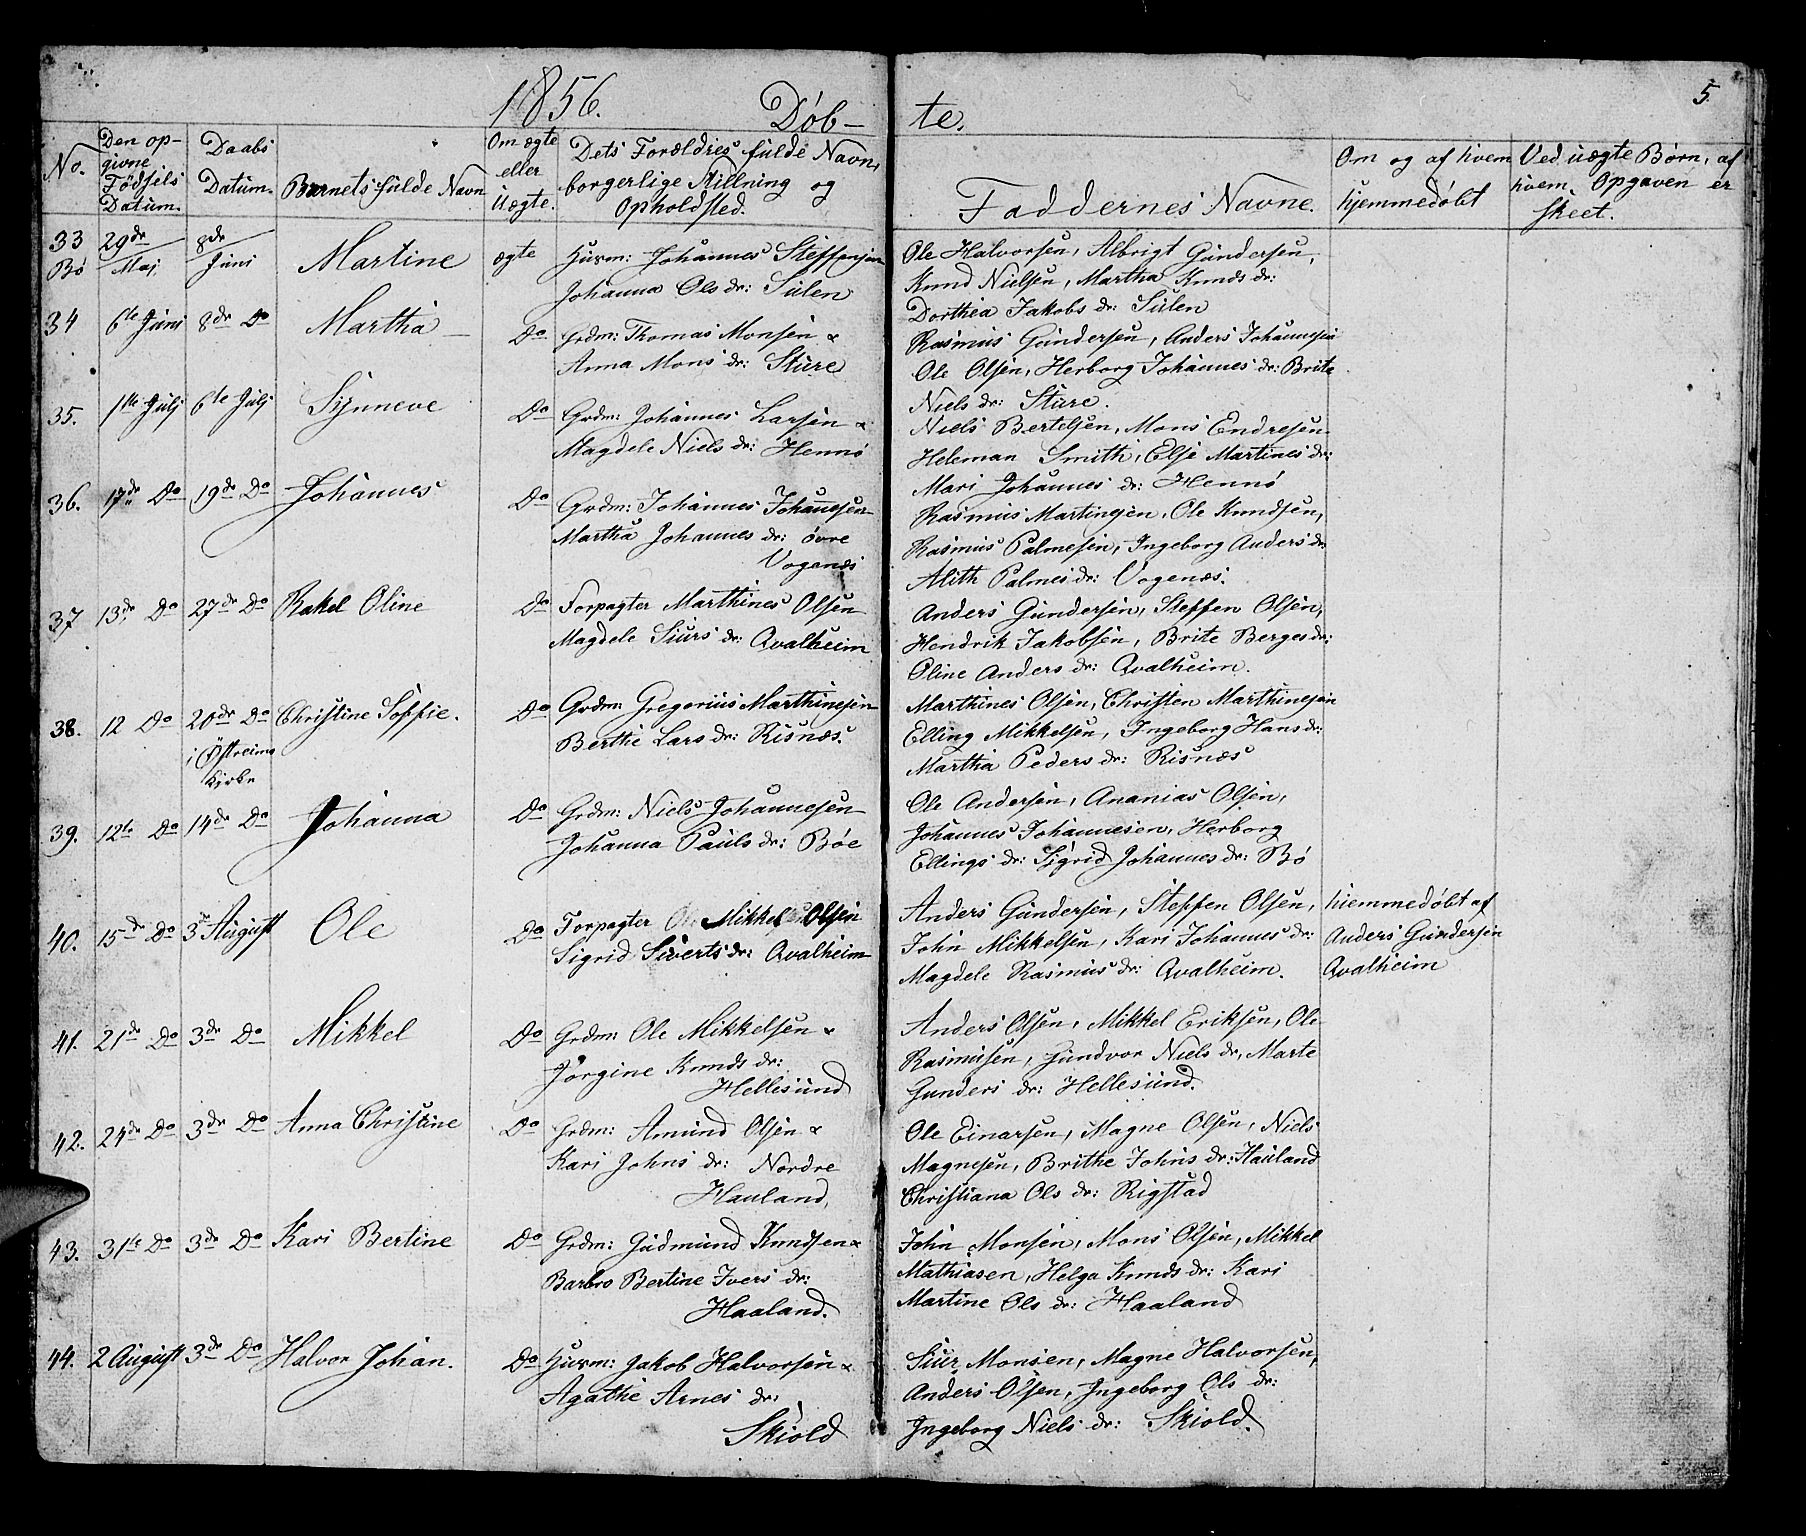 1856.
Døb-
te.
5.
No.
Den op-
givne
Födsels
Datum.
Daabs
Datum.
Barnets fulde Navn
Om ægte
eller
uægte.
Dets Forældres fulde Navn,
borgerlige Stillning og
Opholdsted.
Faddernes Navne.
Om og af hvem
hjemmedøbt
Ved uægte Børn, af
hvem Opgaven er
skeet.
33 29de 8de Martine ægte Huvm: Johannes Steffensen
Bø Maj Juni Johanna Ols dr: Sulen
Ole Halvorsen, Albrigt Gundersen,
Knud Nielsen, Martha Knuds dr:
Dorthea Jakobs dr: Sulen
34 6te Juni 8de Do Martha Do Grdm: Thomas Monsen &
Anna Mons dr: Sture
Rasmus Gundersen, Anders Johannesen
Ole Olsen, Herborg Johannes dr: Brite
Niels dr: Sture.
35. 1ste Julj 6te Julj Synneve Do Grdm: Johannes Larsen &
Magdele Niels dr: Hennö
Niels Bertelsen, Mons Endresen
Heleman Smith, Else Martines dr:
Mari Johannes dr: Hennö
36. 17de Do 19de Do Johannes Do Grdm: Johannes Johannesen
Martha Johannes dr: övre
Vogenæs
Rasmus Martinesen, Ole Knudsen,
Rasmus Palmesen, Ingeborg Anders dr
Alith Palmes dr: Vogenæs.
37 13de Do 27de Do Rakel Oline Do Forpagter Marthines Olsen
Magdele Siurs dr: Qvalheim
Anders Gundersen, Steffen Olsen,
Hendrik Jakobsen, Brite Berges dr:
Oline Anders dr: Qvalheim.
38. 12 Do 20de Do Christine Soffie. Do Grdm: Gregorius Marthinesen
i Østreims
Kirke
Berthe Lars dr: Risnæs.
Marthines Olsen, Christen Marthinesen
Elling Mikkelsen, Ingeborg Hans dr:
Martha Peders dr: Risnæs
39. 12te Do 14de Do Johanna Do Grdm: Niels Johannesen
Johanna Pauls dr: Böe
Ole Andersen, Ananias Olsen,
Johannes Johannesen, Herborg
Ellings dr: Sigrid Johannes dr: Bö
40. 15de Do 3de August Ole Do Forpagter Mikkel Olsen
Sigrid Siverts dr: Qvalheim
Anders Gundersen, Steffen Olsen,
John Mikkelsen, Kari Johannes dr:
Magdele Rasmus dr: Qvalheim.
hiemmedøbt af
Anders Gundersen
Qvalheim
41. 21de Do 3de Do Mikkel Do Grdm: Ole Mikkelsen &
Jörgine Knuds dr:
Hellesund
Anders Olsen, Mikkel Eriksen, Ole
Rasmusen, Gundvor Niels dr, Marte
Gunders dr: Hellesund.
42. 24de Do 3de Do Anna Christine Do Grdm: Amund Olsen &
Kari Johns dr: Nordre
Hauland,
Ole Einarsen, Magne Olsen, Niels
Magnesen, Brithe Johns dr: Hauland
Christiana Ols dr: Rigstad
43. 31te Do 3de Do Kari Bertine Do Grdm: Gudmund Knudsen &
Barbro Bertine Ivers dr:
Haaland.
John Monsen, Mons Olsen, Mikkel
Mathiasen, Helga Knuds dr: Kari
Martine Ols dr: Haaland
44. 2 August 3de Do Halvor Johan. Do Huvm: Jakob Halvorsen &
Agathe Arnes dr:
Skiold
Siur Monsen, Magne Halvorsen,
Anders Olsen, Ingeborg Ols dr:
Ingeborg Niels dr: Skiold.